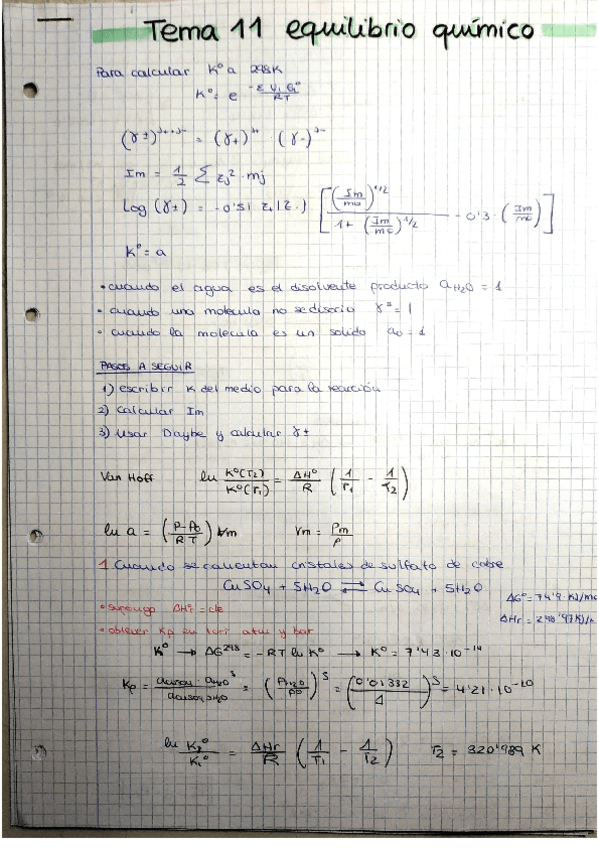 Tema 11 equilibrio químico
Para calcular K° a 298K
K° = e^(-Σ νi Gi°/RT)
(γ±)^(ν+ + ν-) = (γ+)^ν+ · (γ-)^ν-
Im = 1/2 Σ zj² · mj
Log (γ±) = -0'51 z+|z-| [ (Im/m0)^1/2 / (1 + (Im/m0)^1/2) - 0'3 · (Im/m0) ]
K° = a
• cuando el agua es el disolvente producto aH2O = 1
• cuando una molecula no se disocia γ = 1
• cuando la molecula es un solido a0 = 1
PASOS A SEGUIR
1) escribir K del medio para la reacción
2) Calcular Im
3) Usar Daybe y calcular γ±
Van Hoff ln K°(T2)/K°(T1) = ΔH°/R (1/T1 - 1/T2)
ln a = (P-P0/RT) Vm Vm = Pm/ρ
1 Cuando se calientan cristales de sulfato de cobre
CuSO4 + 5H2O ⇌ CuSO4 + 5H2O
ΔG° = 74'9 KJ/mo
• supongo ΔHr = cte
ΔHr = 298'97KJ/
• obtener Kp en torr atm y bar
K° → ΔG^298 = -RT ln K° → K° = 7'43·10^-14
Kp = = (PH2O/P0)^5 = (0'01332/1)^5 = 4'21·10^-10
ln K2°/K1° = ΔHr/R (1/T1 - 1/T2) T2 = 320'989 K